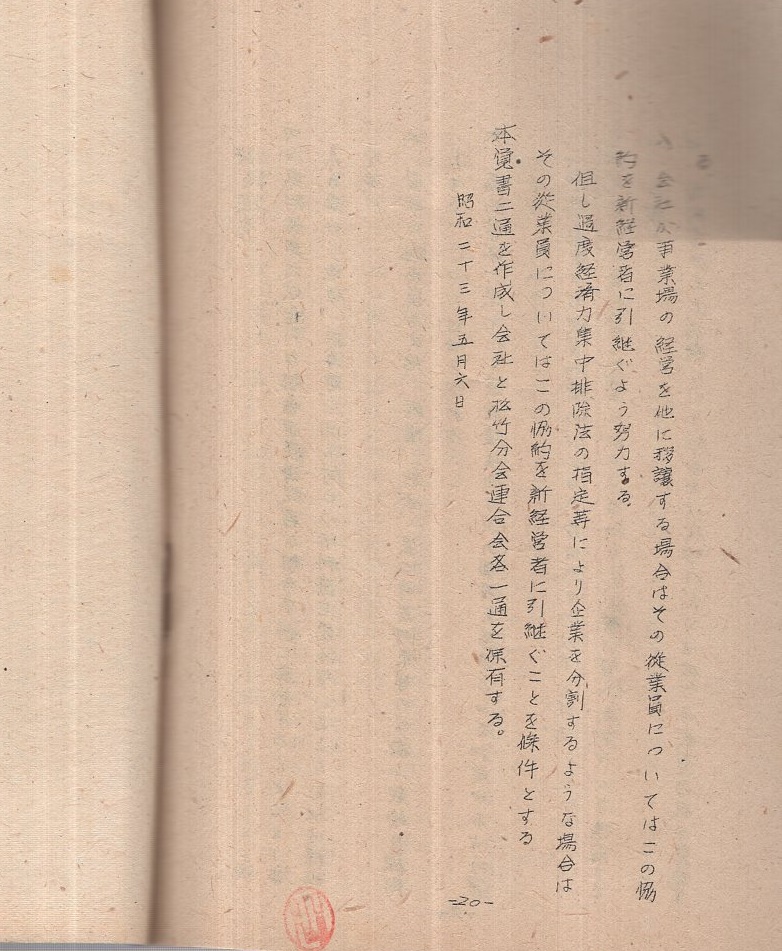 会社が事業場の経営を他に移譲する場合はその従業員についてはこの協
約を新経営者に引継ぐよう努力する。
但し過度経済力集中排除法の指定等により企業を分割するような場合は
その従業員についてはこの協約を新経営者に引継ぐことを條件とする
本覚書二通を作成し会社と松竹分会連合会各一通を保有する。
昭和二十三年五月六日
-20-